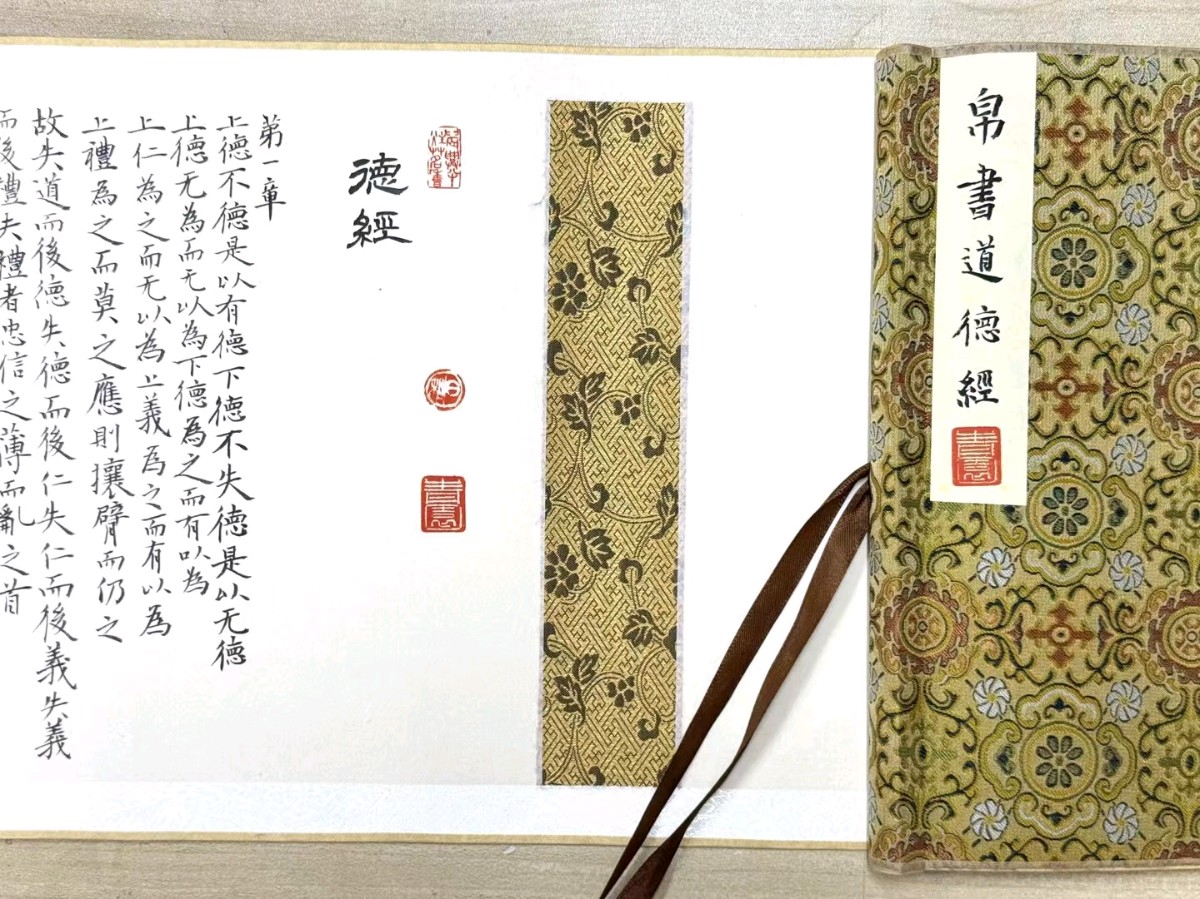 帛書道德經
德經
弟一章
上德不德是以有德下德不失德是以无德
上德无為而无以為下德為之而有以為
上仁為之而无以為上義為之而有以為
上禮為之而莫之應則攘臂而仍之
故失道而後德失德而後仁失仁而後義失義
而後禮夫禮者忠信之薄而亂之首